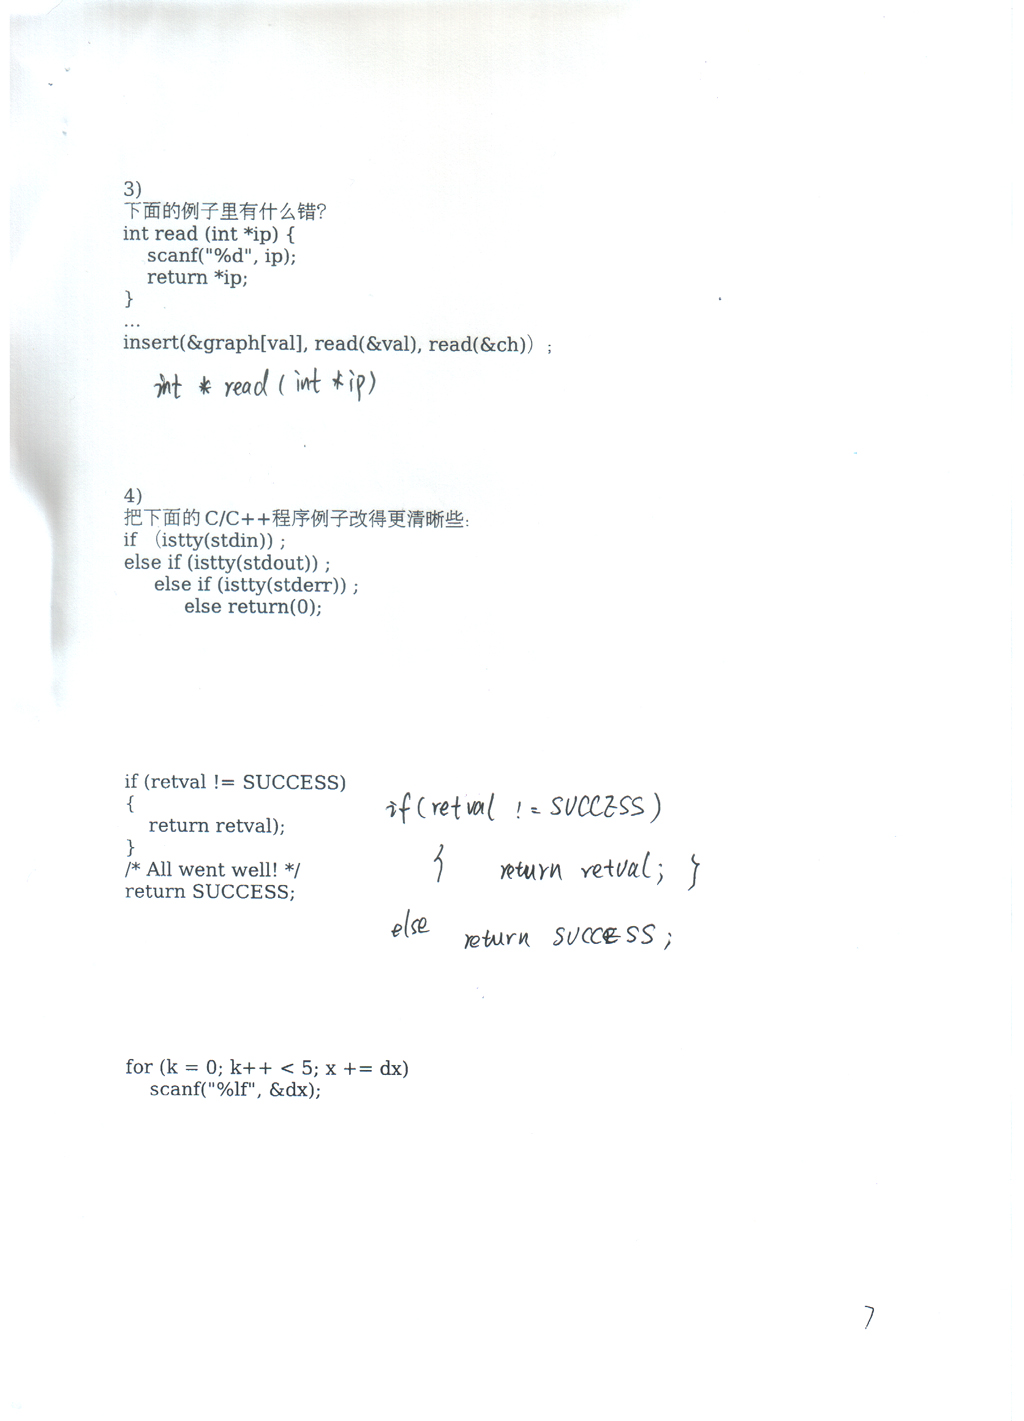 3)
下面的例子里有什么错?
int read (int *ip) {
scanf("%d", ip);
return *ip;
}
...
insert(&graph[val], read(&val), read(&ch)) ;
int * read ( int * ip)
4)
把下面的 C/C++程序例子改得更清晰些:
if （istty(stdin)) ;
else if (istty(stdout)) ;
else if (istty(stderr)) ;
else return(0);
if (retval != SUCCESS)
{
return retval);
}
/* All went well! */
return SUCCESS;
if (retval != SUCCESS)
{ return retval; }
else return SUCCESS;
for (k = 0; k++ < 5; x += dx)
scanf("%lf", &dx);
7